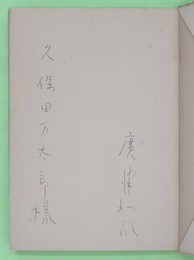 久保田万太郎様
廣津和郎